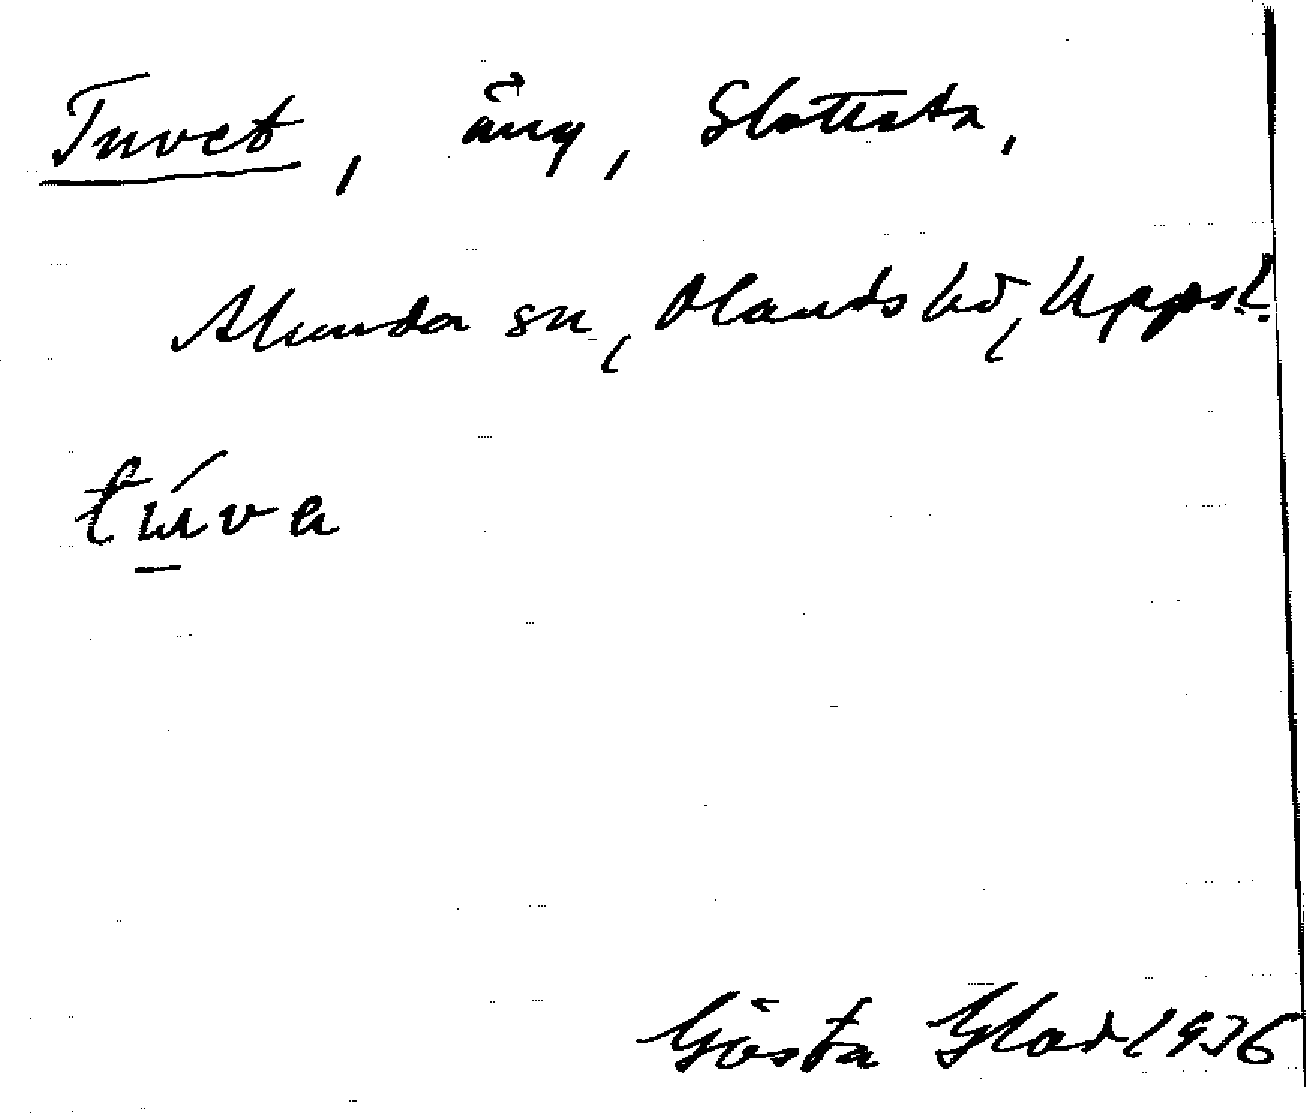 Tuvet, äng, Slottsta,
Alunda sn, Olands hd, Uppsl.
tú̲va
Gösta Glad 1936